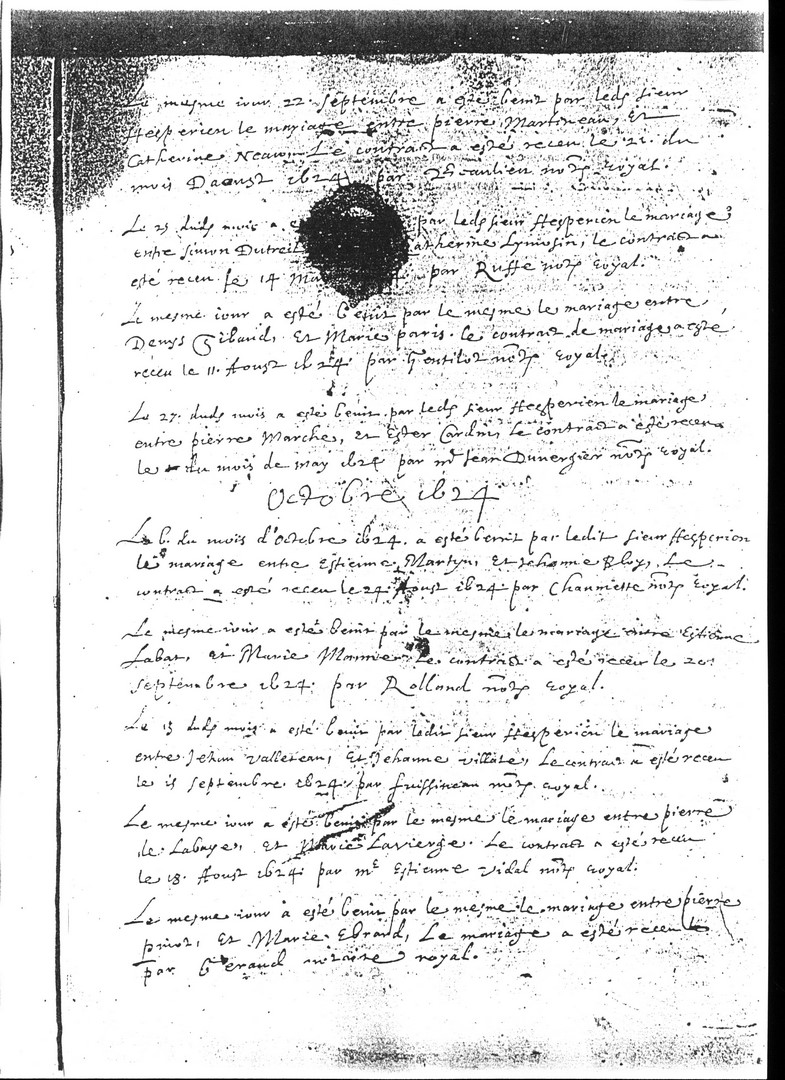 Le mesme iour 22 septembre a esté benit par leds sieur
Hesperien le mariage entre pierre Martineau, Et
Catherine Neau, Le contract a esté receu le 21 du
mois Daoust 1624 par Beaulieu notre royal.
Le 25 duds mois a par leds sieur Hesperien le mariage
entre Simon Dutreil atherine Lymosin, le contract a
esté receu le 14 par Ruffe notre royal.
Le mesme iour a esté benit par le mesme le mariage entre
Denys Gibaud, Et Marie paris. le contract de mariage a esté
receu le 11. Aoust 1624. par Gentilot notre royal.
Le 27. duds mois a esté benit par leds sieur Hesperien le mariage
entre pierre Marche, et Ester Cardin, Le contract a esté receu
le du mois de may 1624 par me Jean Duvergier notre royal.
Octobre 1624
Le 6. du mois d'octobre 1624. a esté benit par ledit sieur Hesperien
le mariage entre Estienne Martyn, Et Jehanne Bloy, Le
contract a esté receu le 24 Aoust 1624 par Chaumette notre royal.
Le mesme iour a esté benit par le mesme le mariage entre Estienne
Labat, et Marie Monnier Le contract a esté receu le 20
septembre 1624. par Rolland notre royal.
Le 13 duds mois a esté benit par ledit sieur Hesperien le mariage
entre Jehan Valleteau, Et Jehanne Villate, Le contract a esté receu
le 15 septembre 1624. par notre royal.
Le mesme iour a esté benit par le mesme le mariage entre pierre
de Labaye, et Marie Lavierge. Le contract a esté receu
le 18. Aoust 1624. par me Estienne Vidal notre royal.
Le mesme iour a esté benit par le mesme le mariage entre pierre
pinot, Et Marie Ebraud, Le mariage a esté receu le
par Geraud notaire royal.